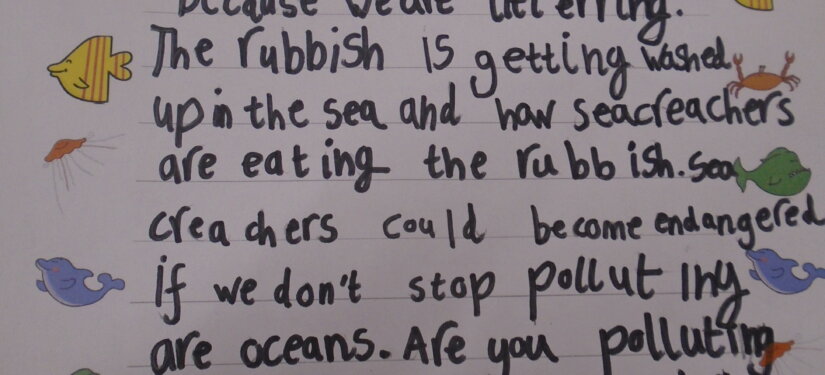 because we are litterring.
The rubbish is getting washed
up in the sea and now seacreachers
are eating the rubbish. sea
creachers could become endangered
if we don't stop polluting
are oceans. Are you polluting